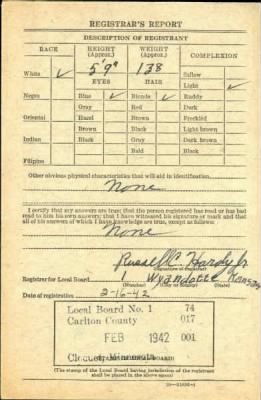 REGISTRAR'S REPORT
DESCRIPTION OF REGISTRANT
RACE HEIGHT (Approx.) WEIGHT (Approx.) COMPLEXION
5'9" 138
White ✓ EYES HAIR Sallow
Light ✓
Negro Blue ✓ Blonde ✓ Ruddy
Gray Red Dark
Oriental Hazel Brown Freckled
Brown Black Light brown
Indian Black Gray Dark brown
Bald Black
Filipino
Other obvious physical characteristics that will aid in identification
None
I certify that my answers are true; that the person registered has read or has had
read to him his own answers; that I have witnessed his signature or mark and that
all of his answers of which I have knowledge are true, except as follows:
None
Russell C. Hardy Jr.
(Signature of registrar)
Registrar for Local Board 1 Wyandotte Kansas
(Number) (City or county) (State)
Date of registration 2-16-42
Local Board No. 1 74
Carlton County 017
FEB 1942 001
Cloquet, Minnesota
(The stamp of the Local Board having jurisdiction of the registrant
shall be placed in the above space)